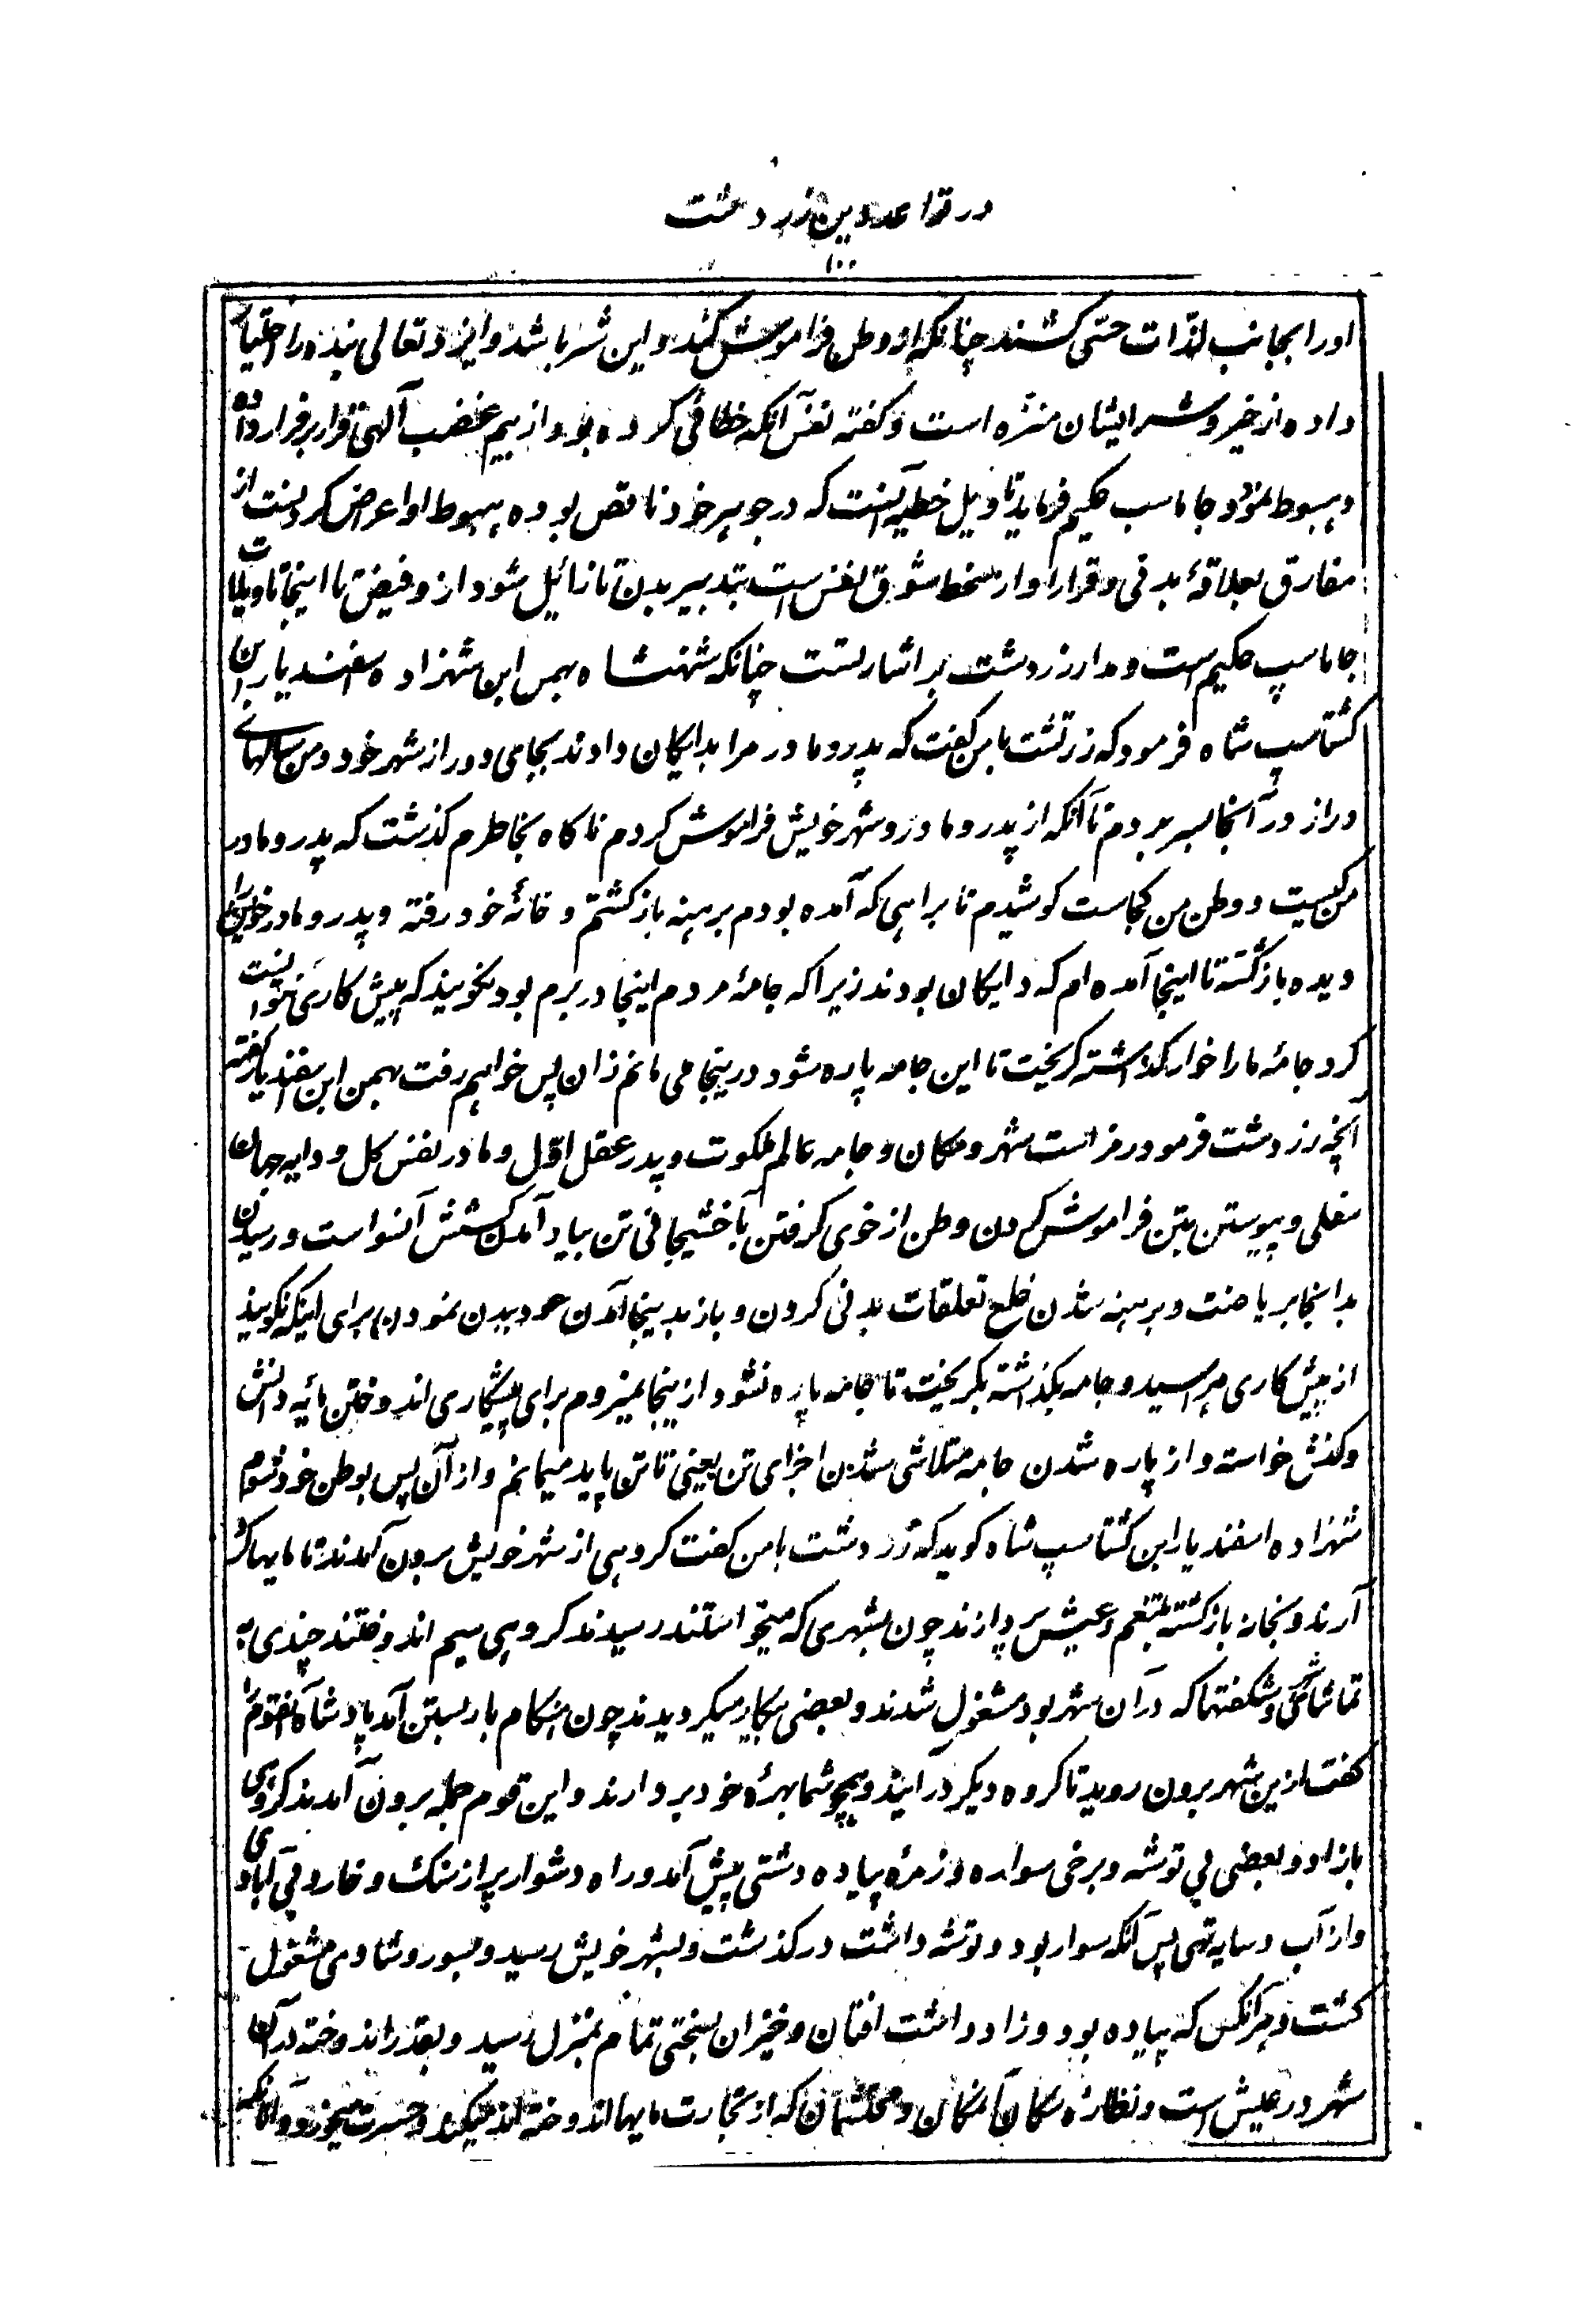 در قواعد دین زردشت
۱۰۰
اورا بجانب لذّات حسّی کشند چنانکه او وطن فراموش کند و این شر باشد و ایزد تعالی بنده را اختیار
داده از خیر و شر ایشان منزّه است و کفته نفس آنکه خطائی کرده بود از بیم غضب آلهی قرار بر فرار داده
و هبوط نمود جاماسب حکیم فرماید تاویل خطیه آنست که در جوهر خود ناقص بوده هبوط او اعراض کردنست از
مفارق بعلاقهٔ بدنی و فرار او از سخط شوق نفس است بتدبیر بدن تا زائل شود از و فیض تا اینجا تاویلات
جاماسپ حکیم است و مدار زردشت بر اشارتست چنانکه شهنشاه بهمن ابن شهزاده سفندیار بن
کشتاسپ شاه فرمود که زرتشت با من کفت که پدر و مادر مرا بدایکان دادند بجای دور از شهر خود و من سالهای
دراز در آنجا بسر بردم تا آنکه از پدر و مادر و شهر خویش فراموش کردم ناکاه بخاطرم کذشت که پدر و مادر
من کیست و وطن من کجاست کوشیدم تا براهی که آمده بودم برهنه بازکشتم و خانهٔ خود رفته و پدر و مادر خویش را
دیده بازکشته تا اینجا آمده ام که دایکان بودند زیرا که جامهٔ مردم اینجا در برم بود نکویند که پیش کاری نتوانست
کرد جامهٔ ما را خوار کذاشته کریخت تا این جامه پاره شود درینجا می مانم زان پس خواهم رفت بهمن ابن اسفندیار کفته
آنچه زردشت فرمود رمز است شهر و مکان و جامه عالم ملکوت و پدر عقل اوّل و مادر نفس کل و دایه جهان
سفلی و پیوستن بتن فراموش کردن وطن از خوی کرفتن بآخشیجانی تن بیاد آمدن کشش آنسو است و رسیدن
بدانجا بریاضت و برهنه شدن خلع تعلقات بدنی کردن و باز بدینجا آمدن عود ببدن نمودن برای اینکه نکویند
از پیش کاری هراسید و جامه بکذاشته بکریخت تا جامه پاره نشود ازینجا نمیروم برای پیشکاری اندوختن مایه دانش
و کنش خواسته و از پاره شدن جامه متلاشی شدن اجزای تن یعنی تا تن پاید میمانم و از آن پس بوطن خود شوم
شهزاده اسفندیار ابن کشتاسپ شاه کوید که زردشت با من کفت کروهی از شهر خویش برون آمدند تا مایها کرد
آرند و بخانه بازکشته بتنعم و عیش پردازند چون بشهری که میخواستند رسیدند کروهی سیم اندوختند چندی به
تماشای و شکفتها که در آن شهر بود مشغول شدند و بعضی بیکار میکردیدند چون هنکام بار بستن آمد پادشاه آنقوم را
کفت ازین شهر برون روید تا کروه دیکر درآیند و همچو شما بهرهٔ خود بردارند و این قوم جمله برون آمدند کروهی
بازاد و بعضی بی توشه و برخی سواره و زمرهٔ پیاده دشتی پیش آمد و راه دشوار پر از سنک و خار و بی آبادی
و از آب و سایه تهی پس آنکه سوار بود و توشه داشت درکذشت و بشهر خویش رسید و بسور و شادی مشغول
کشت و هرانکس که پیاده بود و زاد داشت افتان و خیزان بسختی تمام بمنزل رسید و بقدر اندوخته در آن
شهر در عیش است و نظارهٔ مکان آنکان و محتشمان که از تجارت مایها اندوخته اند میکند و حسرت میخورد و آنانکه